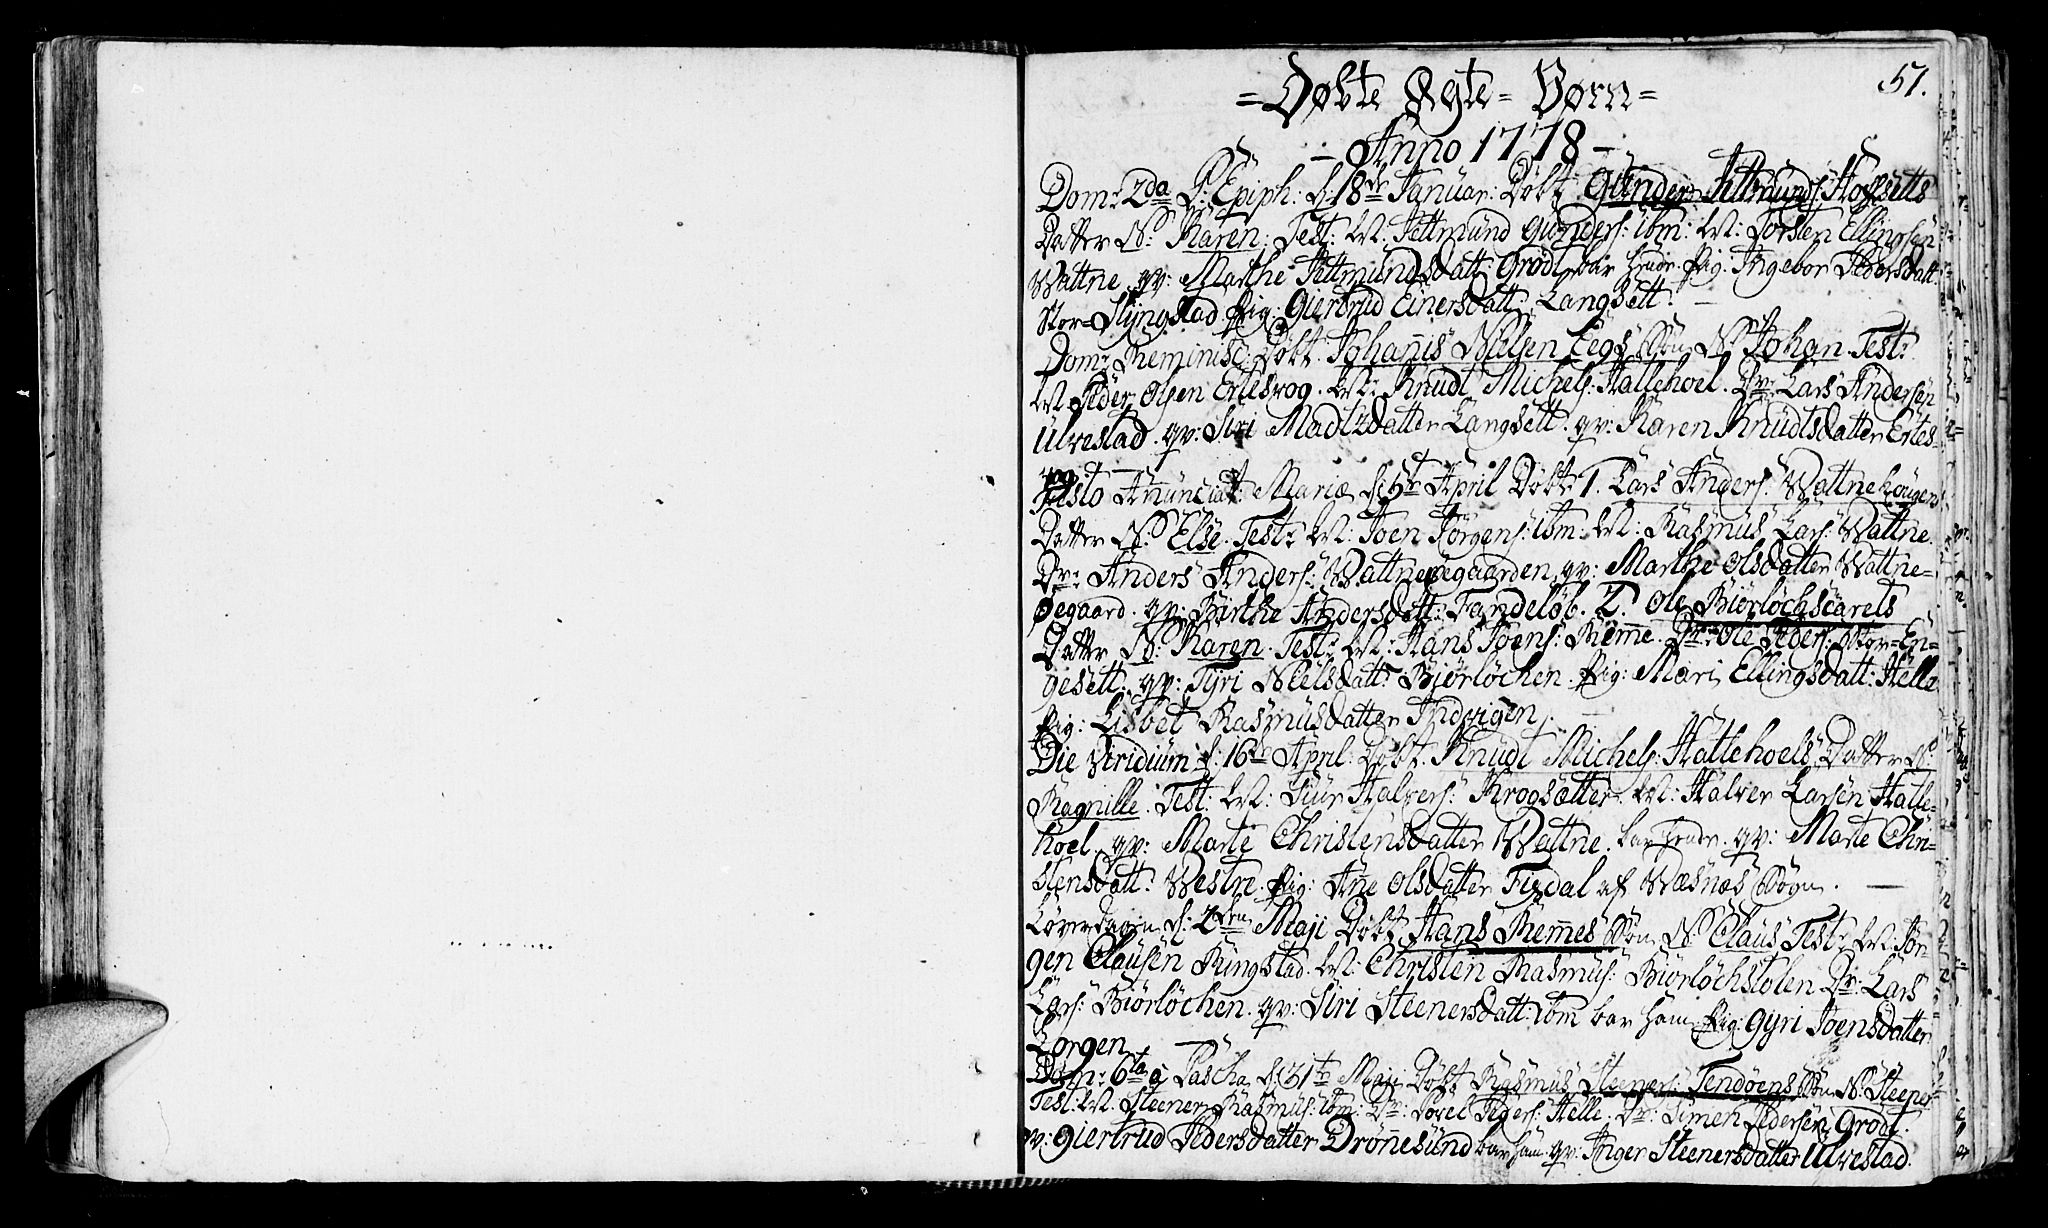 51.
= Døbte Ægte = Børn =
- Anno 1778 -
Dom: 2da P: Epiph: d: 18de Januar: Døbt Gunder Jettmunds: Hofsetts
Datter N: Karen. Test: M: Jettmund Gunders: ibm: M: Torsten Ellingsen
Wattne. qv: Marthe Jettmundsdatt: Grødt bar hende. Pig: Ingebor Pedersdatt:
Stor=Slÿngstad. Pig: Giertrud Einersdatt: Langsett.
Dom: Reminisc: Døbt Johanis Nielsen Eegs Søn N: Johan. Test:
M: Peder Olsen Ertesvog. M: Knudt Michels: Hallehoel. Dr: Lars Andersen
Ulvestad. qv: Siri Madtzdatter Langsett. qv: Karen Knudtsdatter Ertes
vog
Festo Anunciat: Mariæ d: 5te April Døbt 1. Lars Anders: Wattnehougens
Datter N: Else. Test: M: Joen Jørgens: ibm: M: Rasmus Lars: Wattne.
Dr: Anders Anders: Wattneøegaarden. qv: Marthe Olsdatter Wattne=
Øegaard. qv: Birthe Andersdatt: Tandeløb. 2. Ole Biørlöchscarets
Datter N: Karen. Test: M: Hans Joens: Reme. Dr: Ole Peders: Stor=En=
gesett. qv: Tÿri Nielsdatt: Biørlöchen. Pig: Mari Ellingsdatt: Helle
Pig: Lisbet Rasmusdatter Indvigen.
Die Viridium d: 16de April. Døbt. Knudt Michels: Hallehoels Datter N:
Ragnille. Test: M: Siur Halvers: Krogsætter. M: Halver Larsen Halle=
hoel. qv: Marte Christensdatter Wattne. bar hende. qv: Marte Chri=
stensdatt: Westre. Pig: Ane Olsdatter Fixdal af Wæsnæs Sogn.
Løverdagen d: 2den Maji Døbt Hans Remes Søn N: Claus Test: M: Jør
gen Clausen Ringstad. M: Christen Rasmus: Biørlöchstølen Dr: Lars
Lars: Biørlöchen. qv: Siri Steenersdatt: ibm bar ham. Pig: Gyri Joensdatter
Lorgen.
Dom: 6ta à Pascha d: 31te Maji Døbt Rasmus Steeners: Tendøens Søn N: Steener
Test: M: Steener Rasmus: ibm: Dr: Povel Peders: Helle. Dr: Simen Pedersen Grødt.
qv: Giertrud Pedersdatter Drønesund bar ham. qv: Inger Steenersdatter Ulvestad.